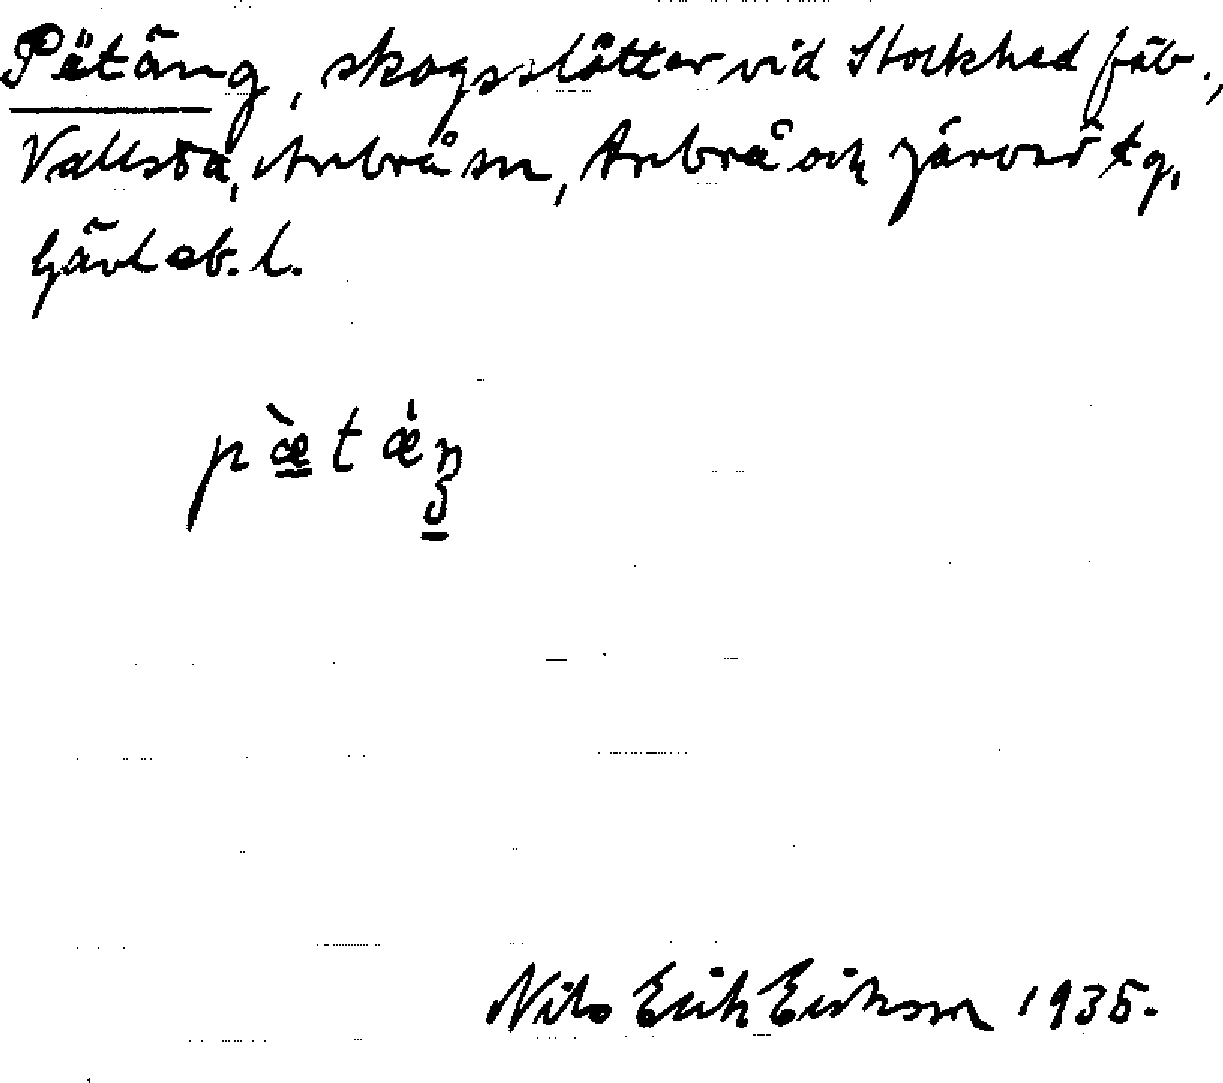 Pätäng, skogsslåtter vid Stockhed fäb.,
Vallsta, Arbrå sn, Arbrå och Järvsö tg,
Gävleb. l.
pæ̀tæ̇ŋ
Nils Erik Eriksson 1935.